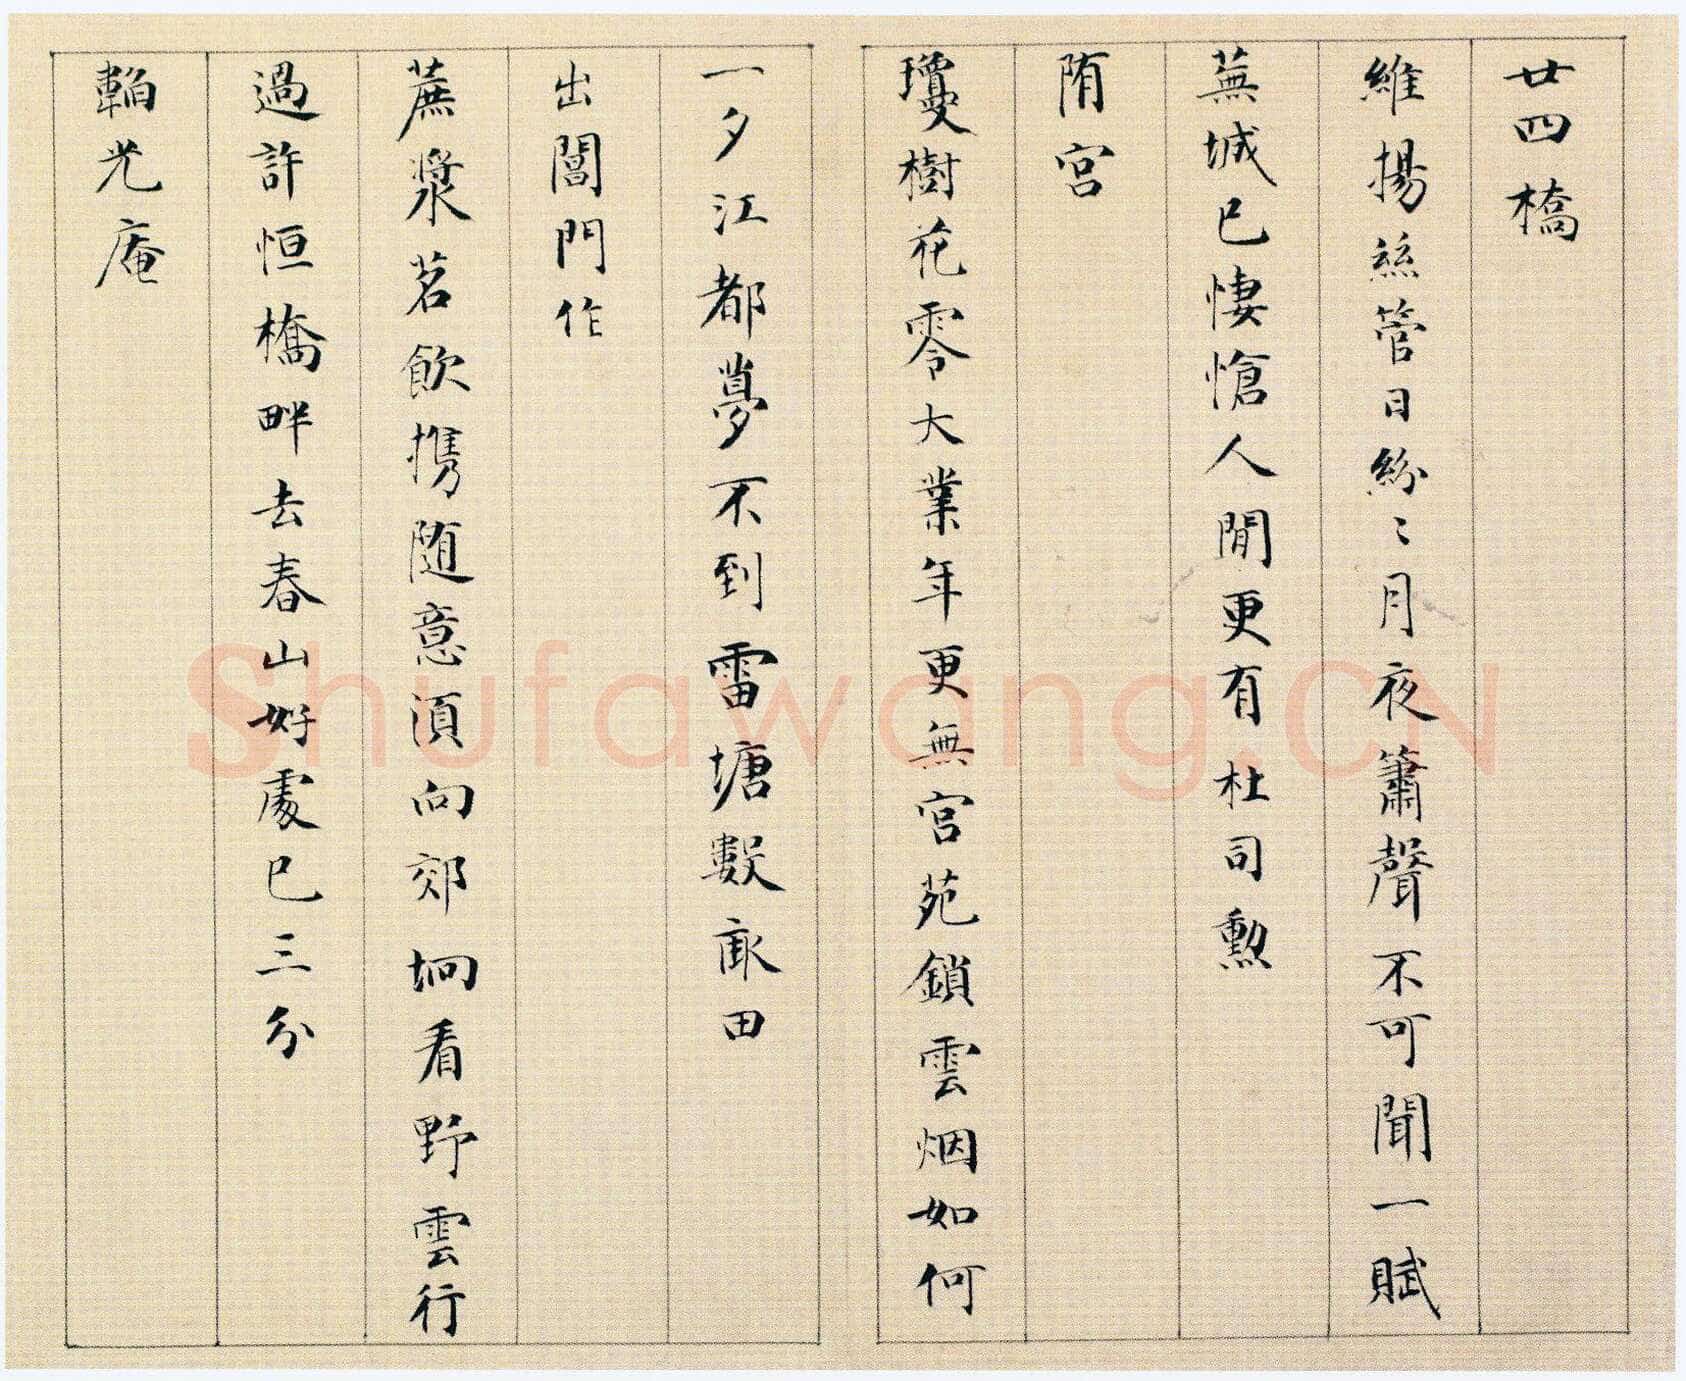 廿四橋
維揚絲管日紛〻月夜簫聲不可聞一賦
蕪城已悽愴人間更有杜司勲
隋宮
瓊樹花零大業年更無宮苑鎖雲烟如何
一夕江都夢不到雷塘數畝田
出閶門作
蔗漿茗飲攜随意須向郊坰看野雲行
過許恒橋畔去春山好處已三分
韜光庵
Shufawang.CN